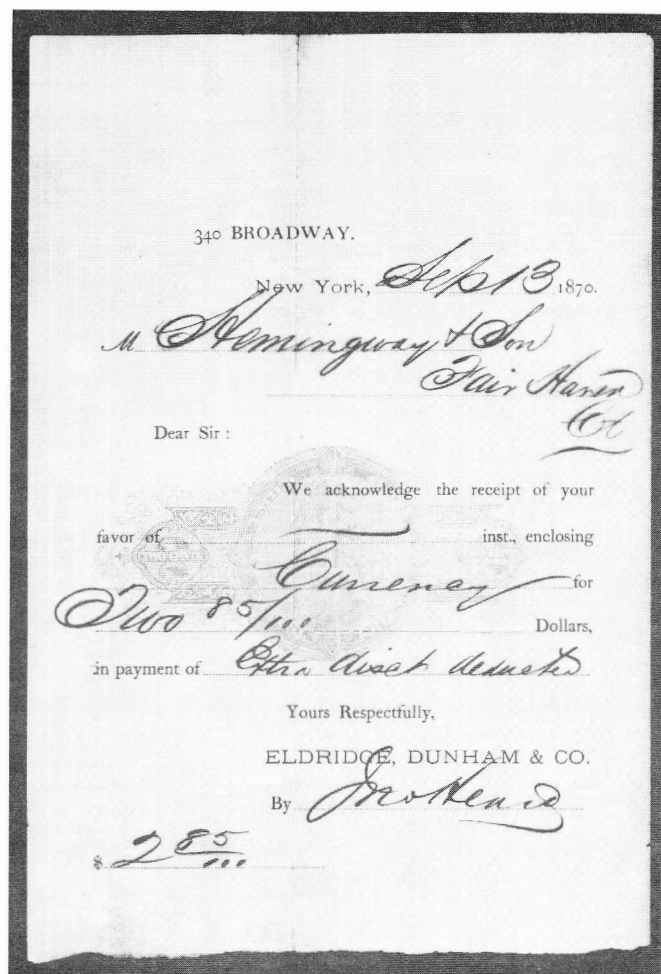 340 BROADWAY.
New York, Sep 13 1870.
M Hemingway & Son
Fair Haven
Ct
Dear Sir :
We acknowledge the receipt of your
favor of — inst., enclosing
Currency for
Two 85/100 Dollars,
in payment of Extra disct deducted
Yours Respectfully,
ELDRIDGE, DUNHAM & CO.
By Jno
$ 2 85/100